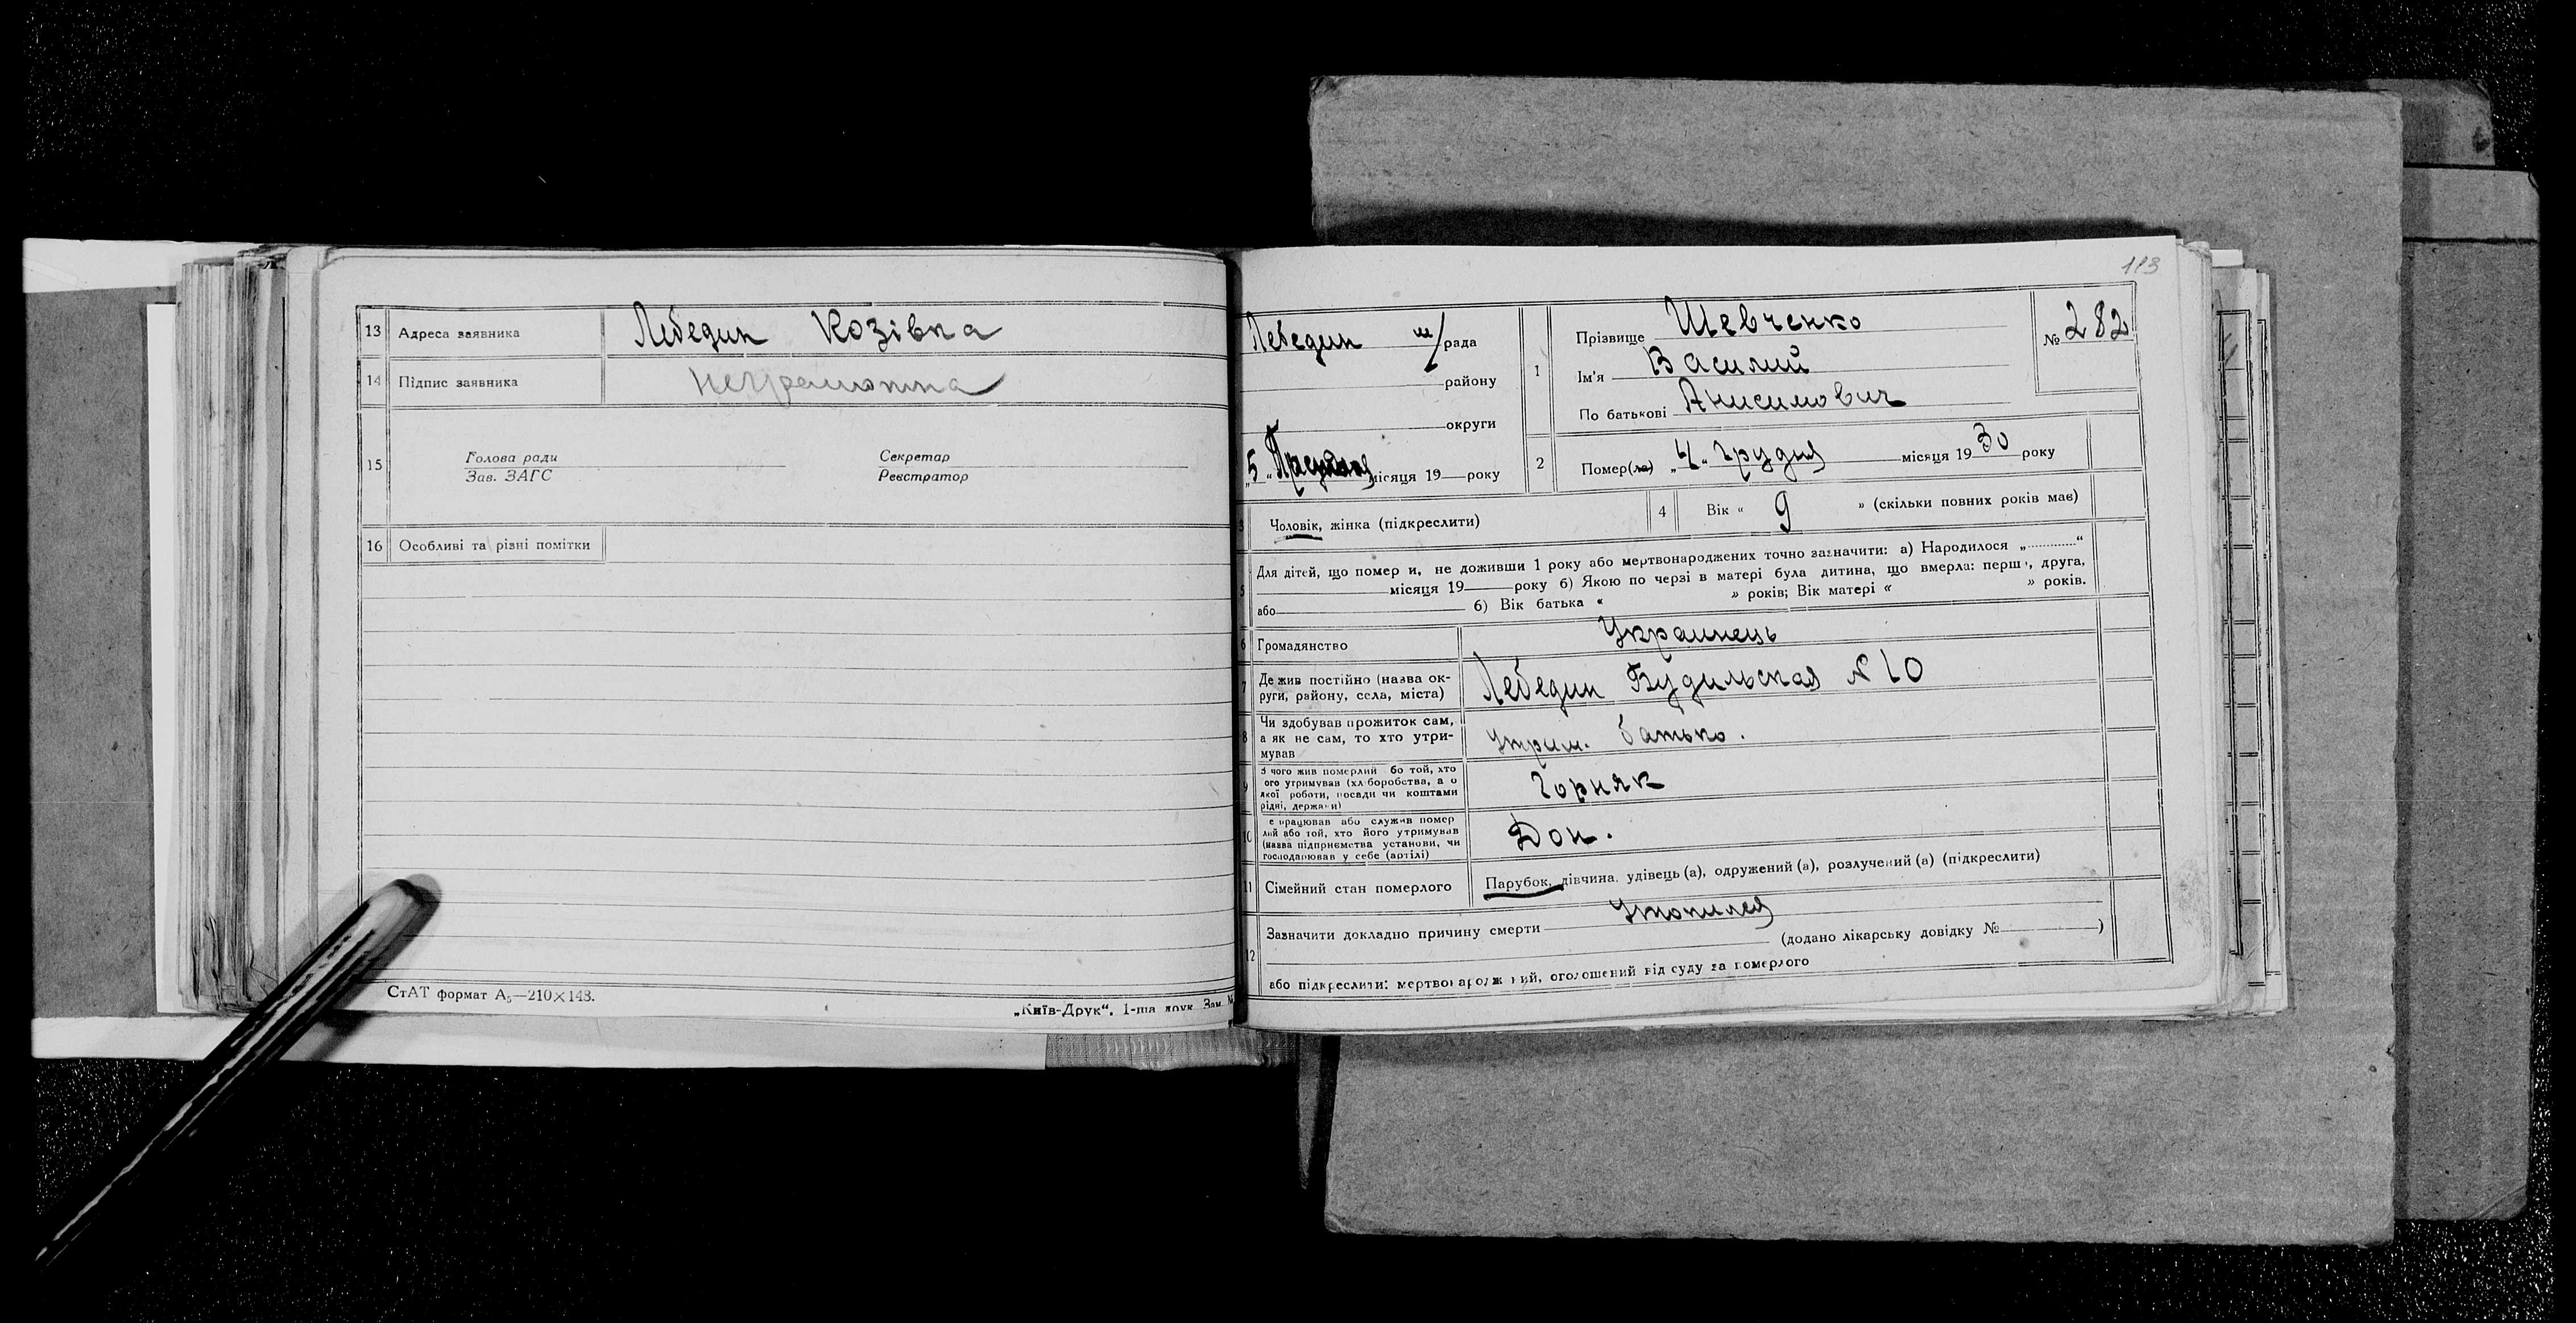 13 Адреса заявника Лебедин Козівка
14 Підпис заявника неграмотна
15 Голова ради Секретар
Зав. ЗАГС Реєстратор
16 Особливі та різні помітки
СтАТ формат А₅—210×148.
„Київ-Друк“. 1-ша друк. Зам. №
113
Лебедин м/рада
району
округи
„5“ місяця 19 року
1 Прізвище Шевченко
Ім'я Василий
По батькові Анисимович
№ 282
2 Помер(ла) „4“ грудня місяця 1930 року
3 Чоловік, жінка (підкреслити) 4 Вік « 9 » (скільки повних років має)
5 Для дітей, що помер и, не доживши 1 року або мертвонароджених точно зазначити: а) Народилося „............“
місяця 19 року б) Якою по черзі в матері була дитина, що вмерла: перш , друга,
або б) Вік батька « » років; Вік матері « » років.
6 Громадянство Украинець
7 Де жив постійно (назва ок-
руги, району, села, міста) Лебедин Будильская № 10
8 Чи здобував прожиток сам,
а як не сам, то хто утри-
мував утрим. батько.
9 З чого жив померлий бо той, хто
ого утримував (хл боробства, а о
якої роботи, посади чи коштами
рідні, держа и) Горняк
10 е працював або служив помер
лий або той, хто його утримував
(назва підприємства установи, чи
господарював у себе (артілі) Дон.
11 Сімейний стан померлого Парубок, дівчина, удівець(а), одружений(а), розлучений(а) (підкреслити)
12 Зазначити докладно причину смерти Утопился
(додано лікарську довідку № )
або підкреслити: мертвонароджений, оголошений від суду за померлого